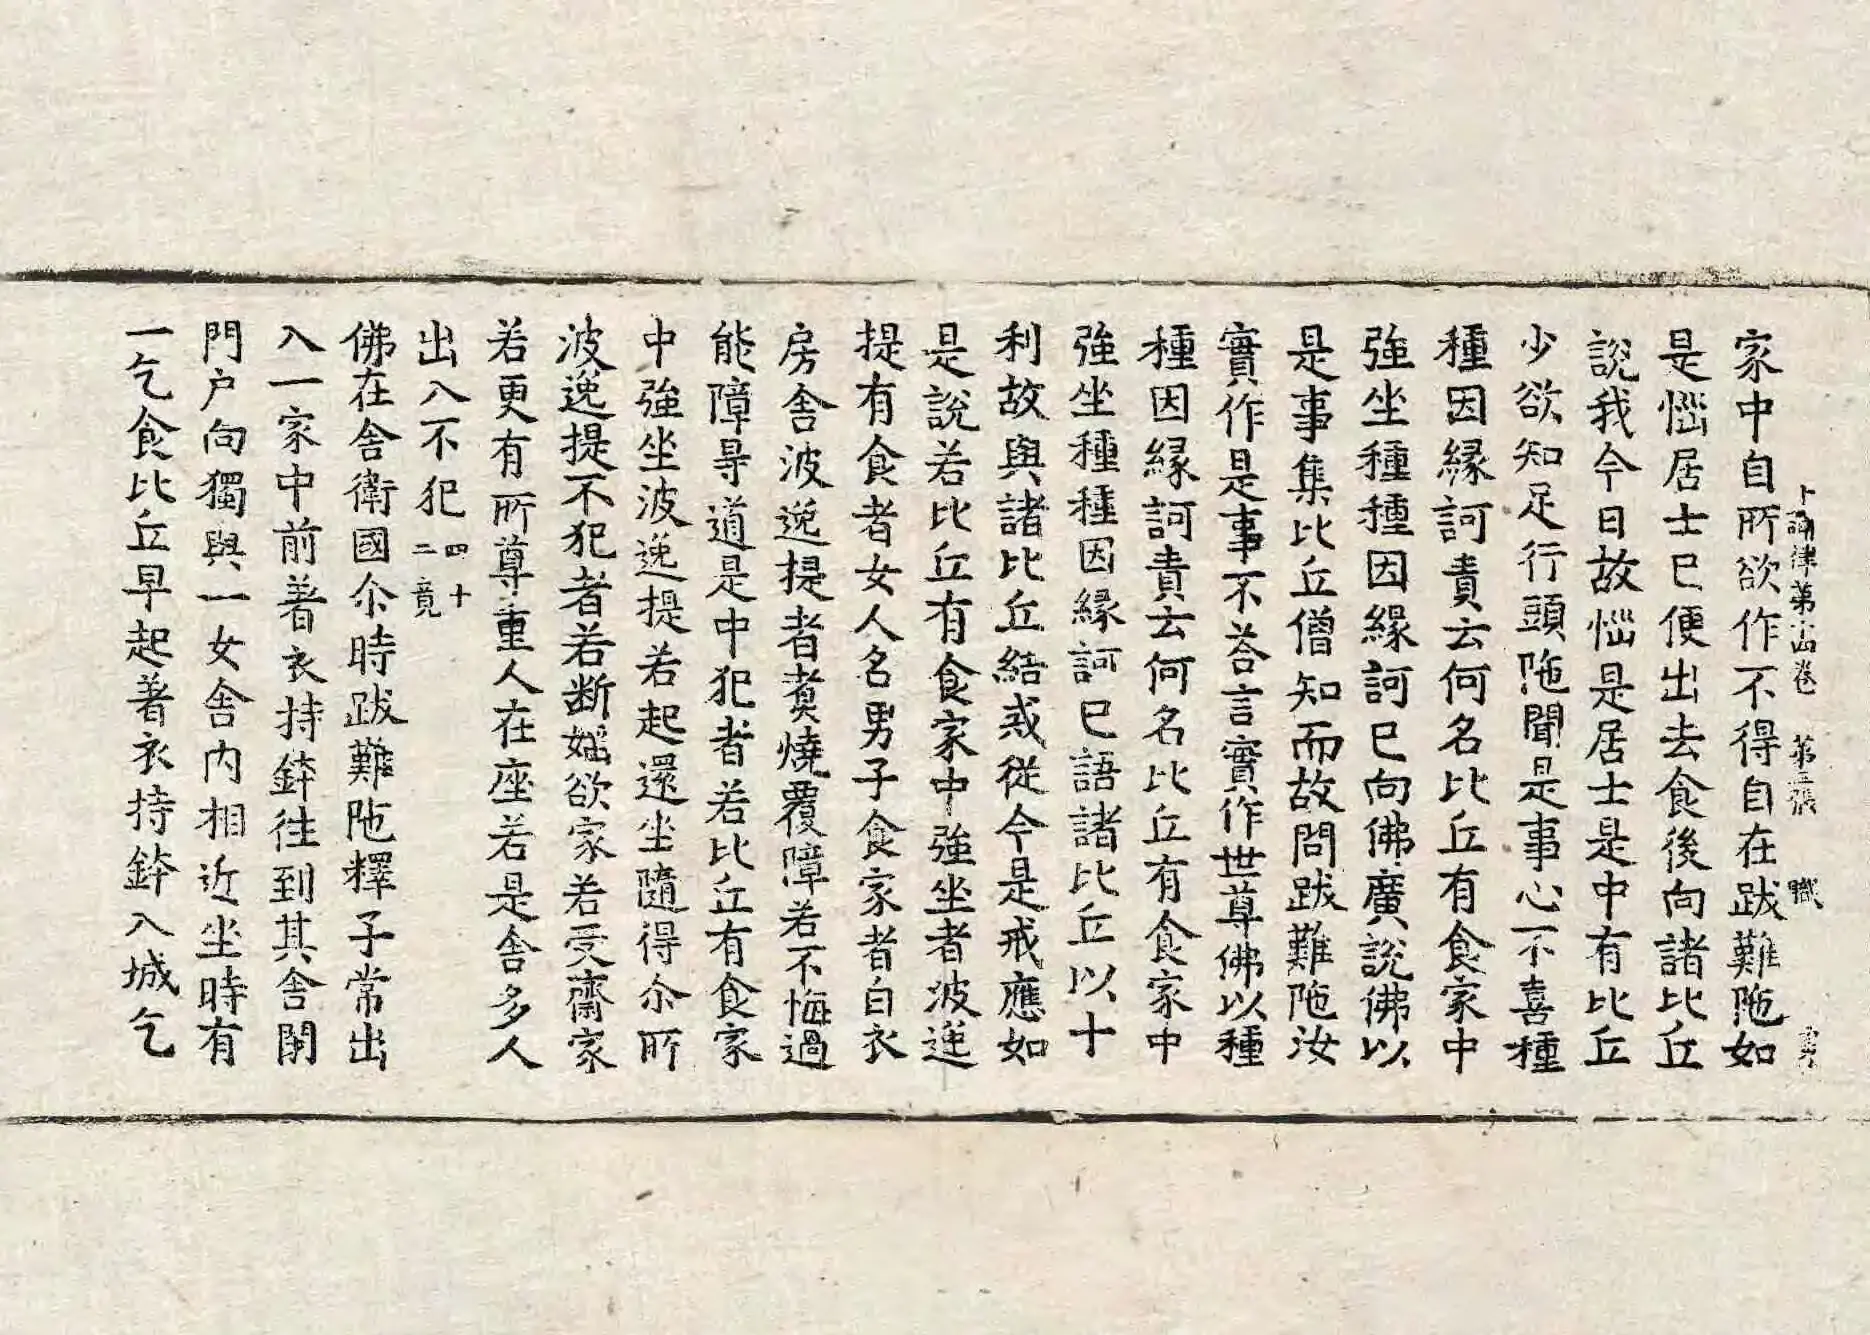 十誦律第十四卷 第三張 職
家中自所欲作不得自在跋難陁如
是惱居士已便出去食後向諸比丘
說我今日故惱是居士是中有比丘
少欲知足行頭陁聞是事心不喜種
種因緣訶責云何名比丘有食家中
強坐種種因緣訶已向佛廣說佛以
是事集比丘僧知而故問跋難陁汝
實作是事不荅言實作世尊佛以種
種因緣訶責云何名比丘有食家中
強坐種種因緣訶已語諸比丘以十
利故與諸比丘結戒從今是戒應如
是說若比丘有食家中強坐者波逸
提有食者女人名男子食家者白衣
房舍波逸提者煑燒覆障若不悔過
能障㝵道是中犯者若比丘有食家
中強坐波逸提若起還坐隨得尒所
波逸提不犯者若断婬欲家若受齋家
若更有所尊重人在座若是舍多人
出入不犯四十二竟
佛在舍衛國尒時跋難陁釋子常出
入一家中前著衣持鉢往到其舍閇
門户向獨與一女舍內相近坐時有
一乞食比丘早起著衣持鉢入城乞